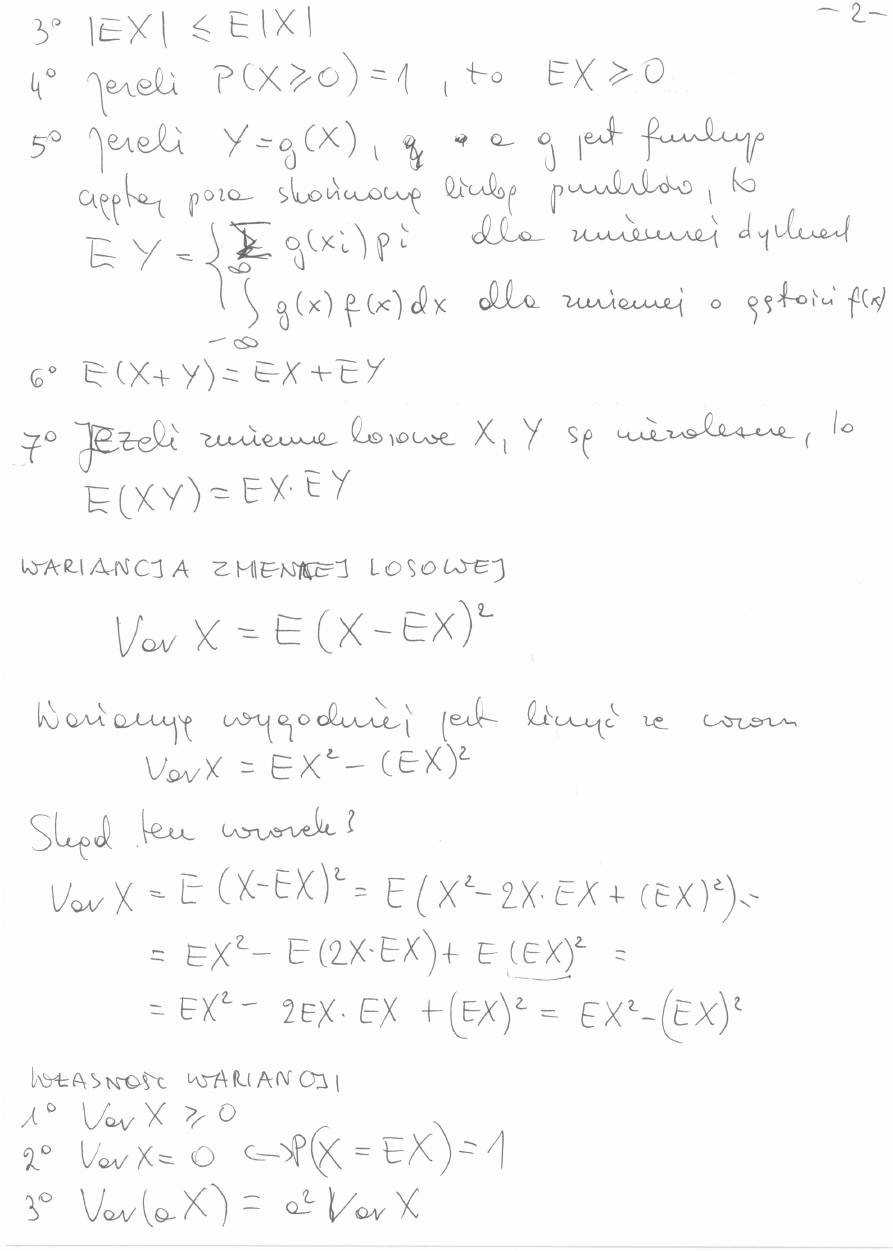 - 2 -
3° |EX| ≤ E|X|
4° Jeżeli P(X ≥ 0) = 1, to EX ≥ 0
5° Jeżeli Y = g(X), a g jest funkcją
ciągłą poza skończoną liczbą punktów, to
EY = { Σ g(xi) pi dla zmiennej dyskret
∫_{-∞}^{∞} g(x) f(x) dx dla zmiennej o gęstości f(x)
6° E(X+Y) = EX + EY
7° Jeżeli zmienne losowe X, Y są niezależne, to
E(XY) = EX · EY
WARIANCJA ZMIENNEJ LOSOWEJ
Var X = E(X - EX)²
Wariancję wygodniej jest liczyć ze wzoru
Var X = EX² - (EX)²
Skąd ten wzorek?
Var X = E(X-EX)² = E(X² - 2X·EX + (EX)²) =
= EX² - E(2X·EX) + E(EX)² =
= EX² - 2EX·EX + (EX)² = EX² - (EX)²
WŁASNOŚC WARIANCJI
1° Var X ≥ 0
2° Var X = 0 ↔ P(X = EX) = 1
3° Var(aX) = a² Var X